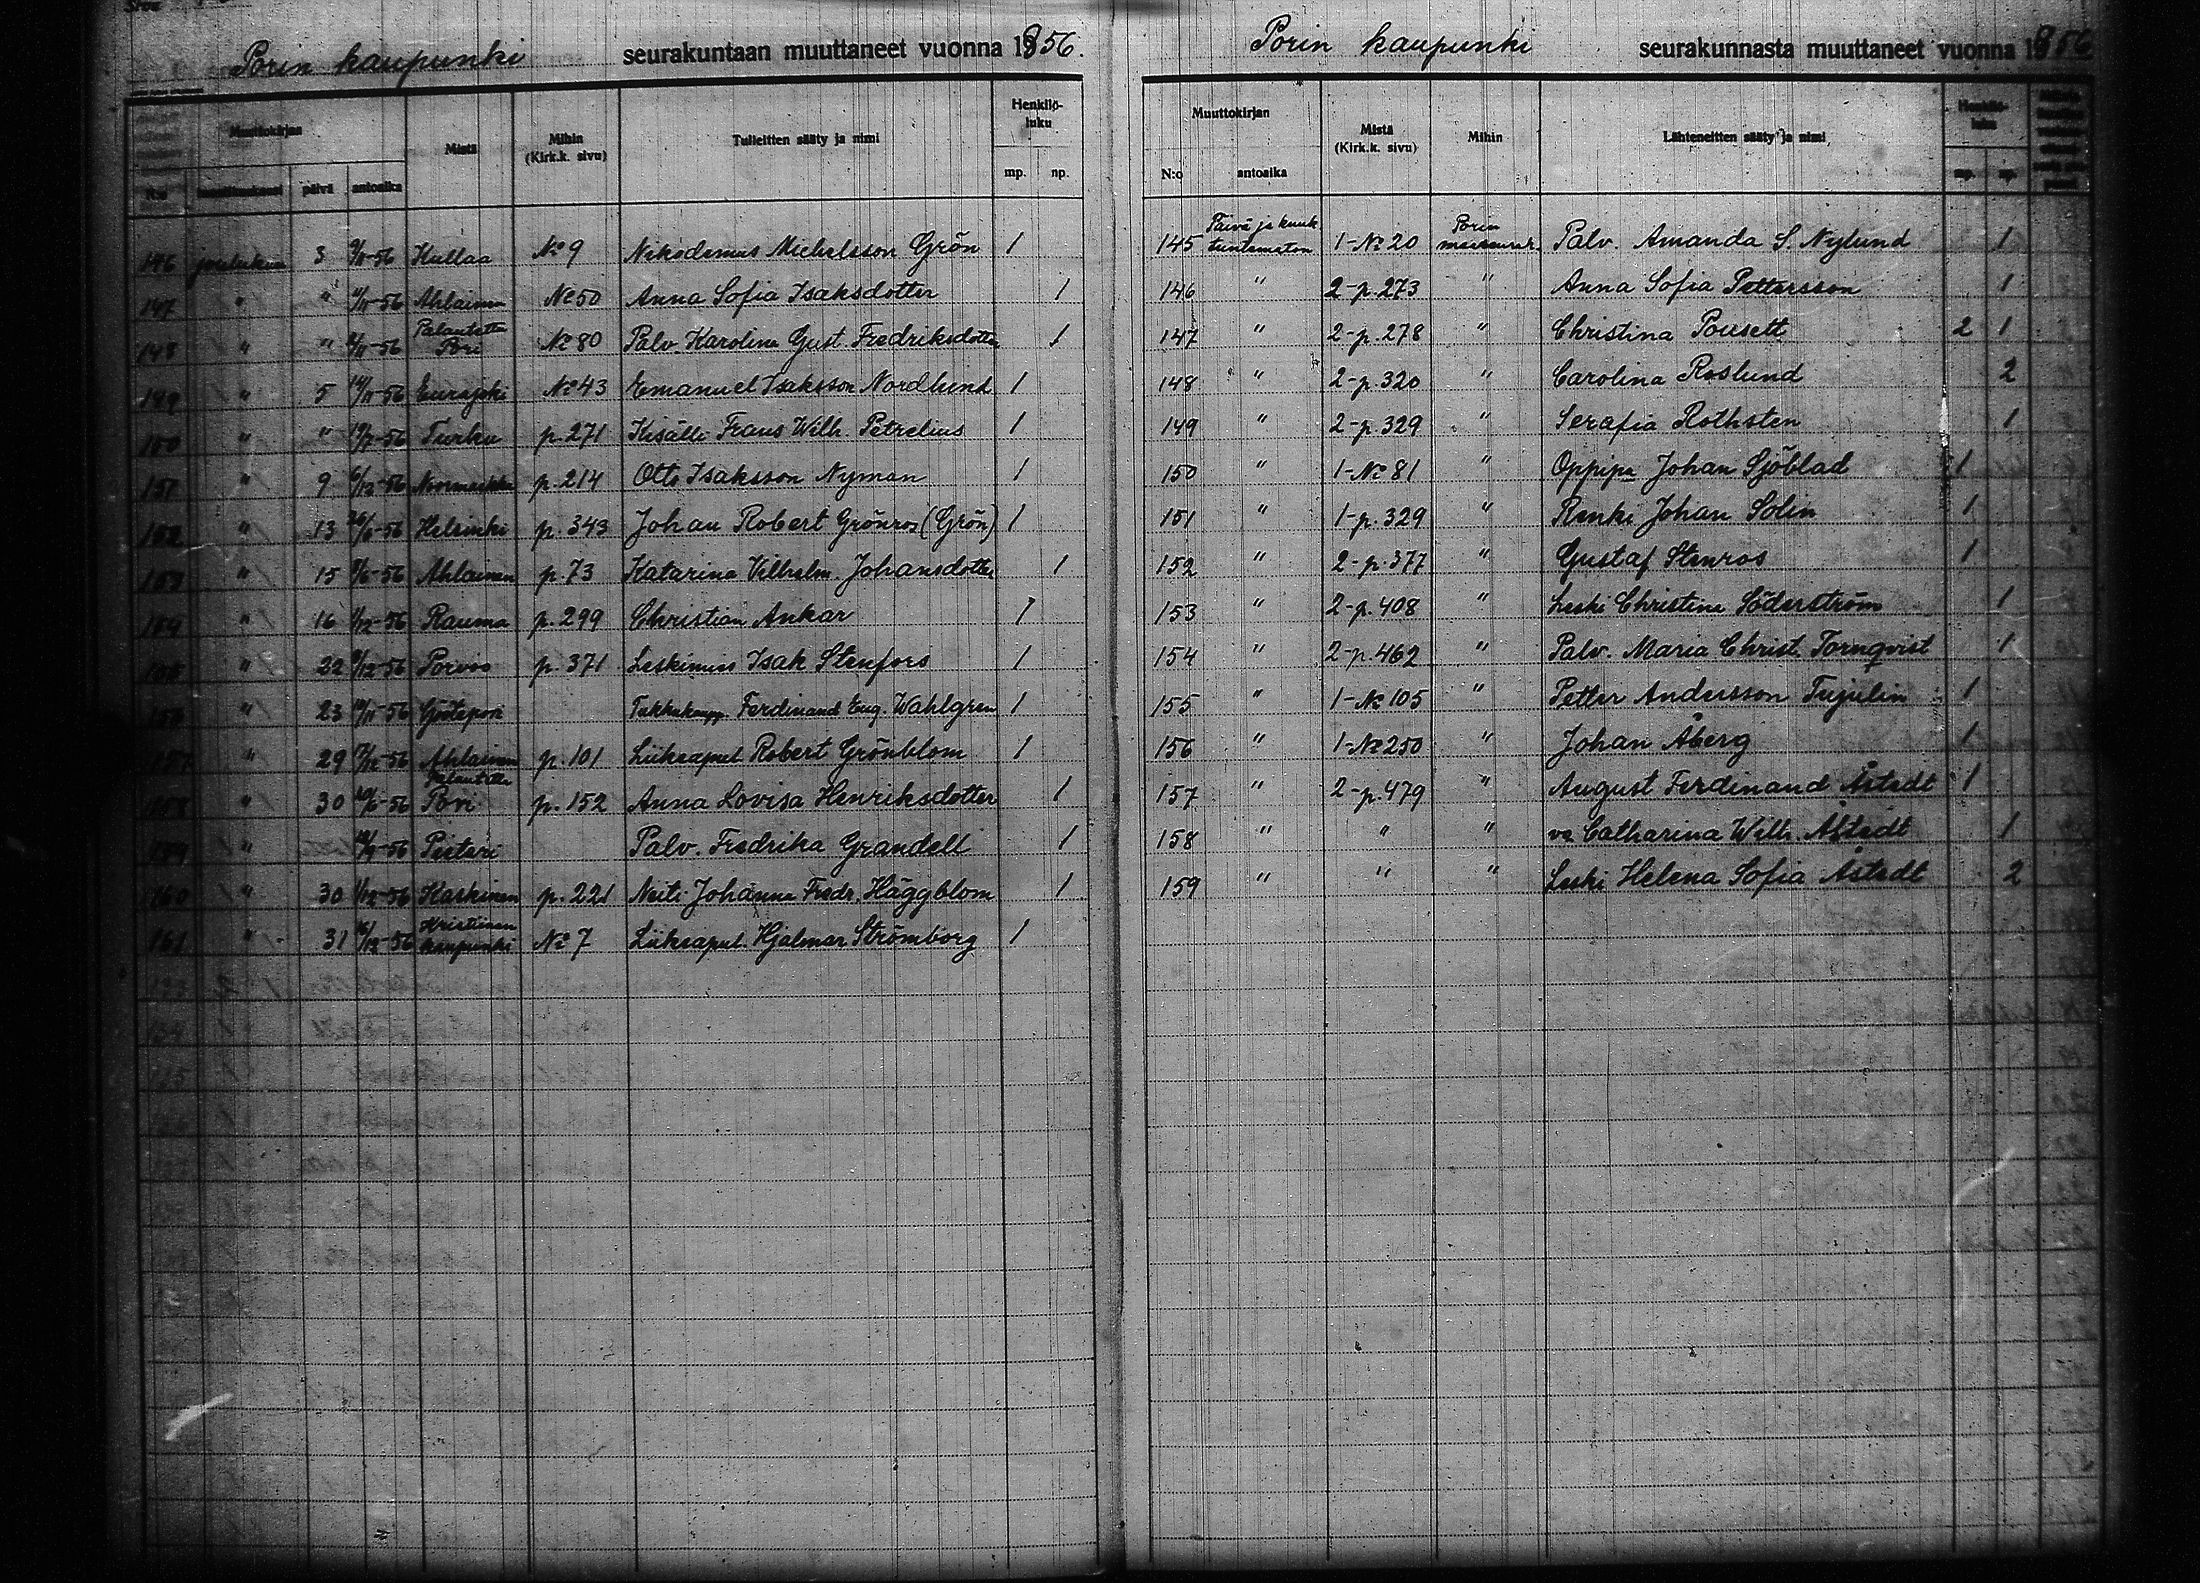 Porin kaupunki seurakuntaan muuttaneet vuonna 1856.
Muuttokirjan Mistä Mihin (Kirk.k. sivu) Tulleitten sääty ja nimi Henkilö-luku
N:o päivä antoaika mp. np.
146 joulukuu 3 Kullaa No 9 Nikodemus Michelsson Grön 1
147 " " Ahlainen No 50 Anna Sofia Isaksdotter 1
148 " " Palautettu Pori No 80 Palv. Karolina Gust. Fredriksdotter 1
149 " 5 14/11-56 Eurajoki No 43 Emanuel Isaksson Nordlund 1
150 " " Turku p. 271 Kisälli Frans Wilh. Petrelius 1
151 " 9 6/12-56 Noormarkku p. 214 Otto Isaksson Nyman 1
152 " 13 Helsinki p. 343 Johan Robert Grönros (Grön) 1
153 " 15 Ahlainen p. 73 Katarina Vilhelm. Johansdotter 1
154 " 16 Rauma p. 299 Christian Ankar 1
155 " 22 Porvoo p. 371 Leskimies Isak Stenfors 1
156 " 23 Ferdinand Eug. Wahlgren 1
157 " 29 Ahlainen p. 101 Liikeapul. Robert Grönblom 1
158 " 30 Palautettu Pori p. 152 Anna Lovisa Henriksdotter 1
159 " Pietari Palv. Fredrika Grandell 1
160 " 30 Kaskinen p. 221 Neiti Johanna Fredr. Häggblom 1
161 " 31 16/12-56 Kristiinan kaupunki No 7 Liikeapul. Hjalmar Strömborg 1
Porin kaupunki seurakunnasta muuttaneet vuonna 1856
Muuttokirjan Mistä (Kirk.k. sivu) Mihin Lähteneitten sääty ja nimi Henkilö-luku
N:o antoaika mp. np.
145 Päivä ja kuuk. tuntematon 1-No 20 Porin maaseurak. Palv. Amanda S. Nylund 1
146 " 2-p. 273 " Anna Sofia Pettersson 1
147 " 2-p. 278 " Christina Pousett 2 1
148 " 2-p. 320 " Carolina Roslund 2
149 " 2-p. 329 " Serafia Rothsten 1
150 " 1-No 81 " Oppipa Johan Sjöblad 1
151 " 1-p. 329 " Renki Johan Solin 1
152 " 2-p. 377 " Gustaf Stenros 1
153 " 2-p. 408 " Leski Christina Söderström 1
154 " 2-p. 462 " Palv. Maria Christ. Tornqvist 1
155 " 1-No 105 " Petter Andersson Tujulin 1
156 " 1-No 250 " Johan Åberg 1
157 " 2-p. 479 " August Ferdinand Åstedt 1
158 " " " va Catharina Wilh. Åstedt 1
159 " " " Leski Helena Sofia Åstedt 2